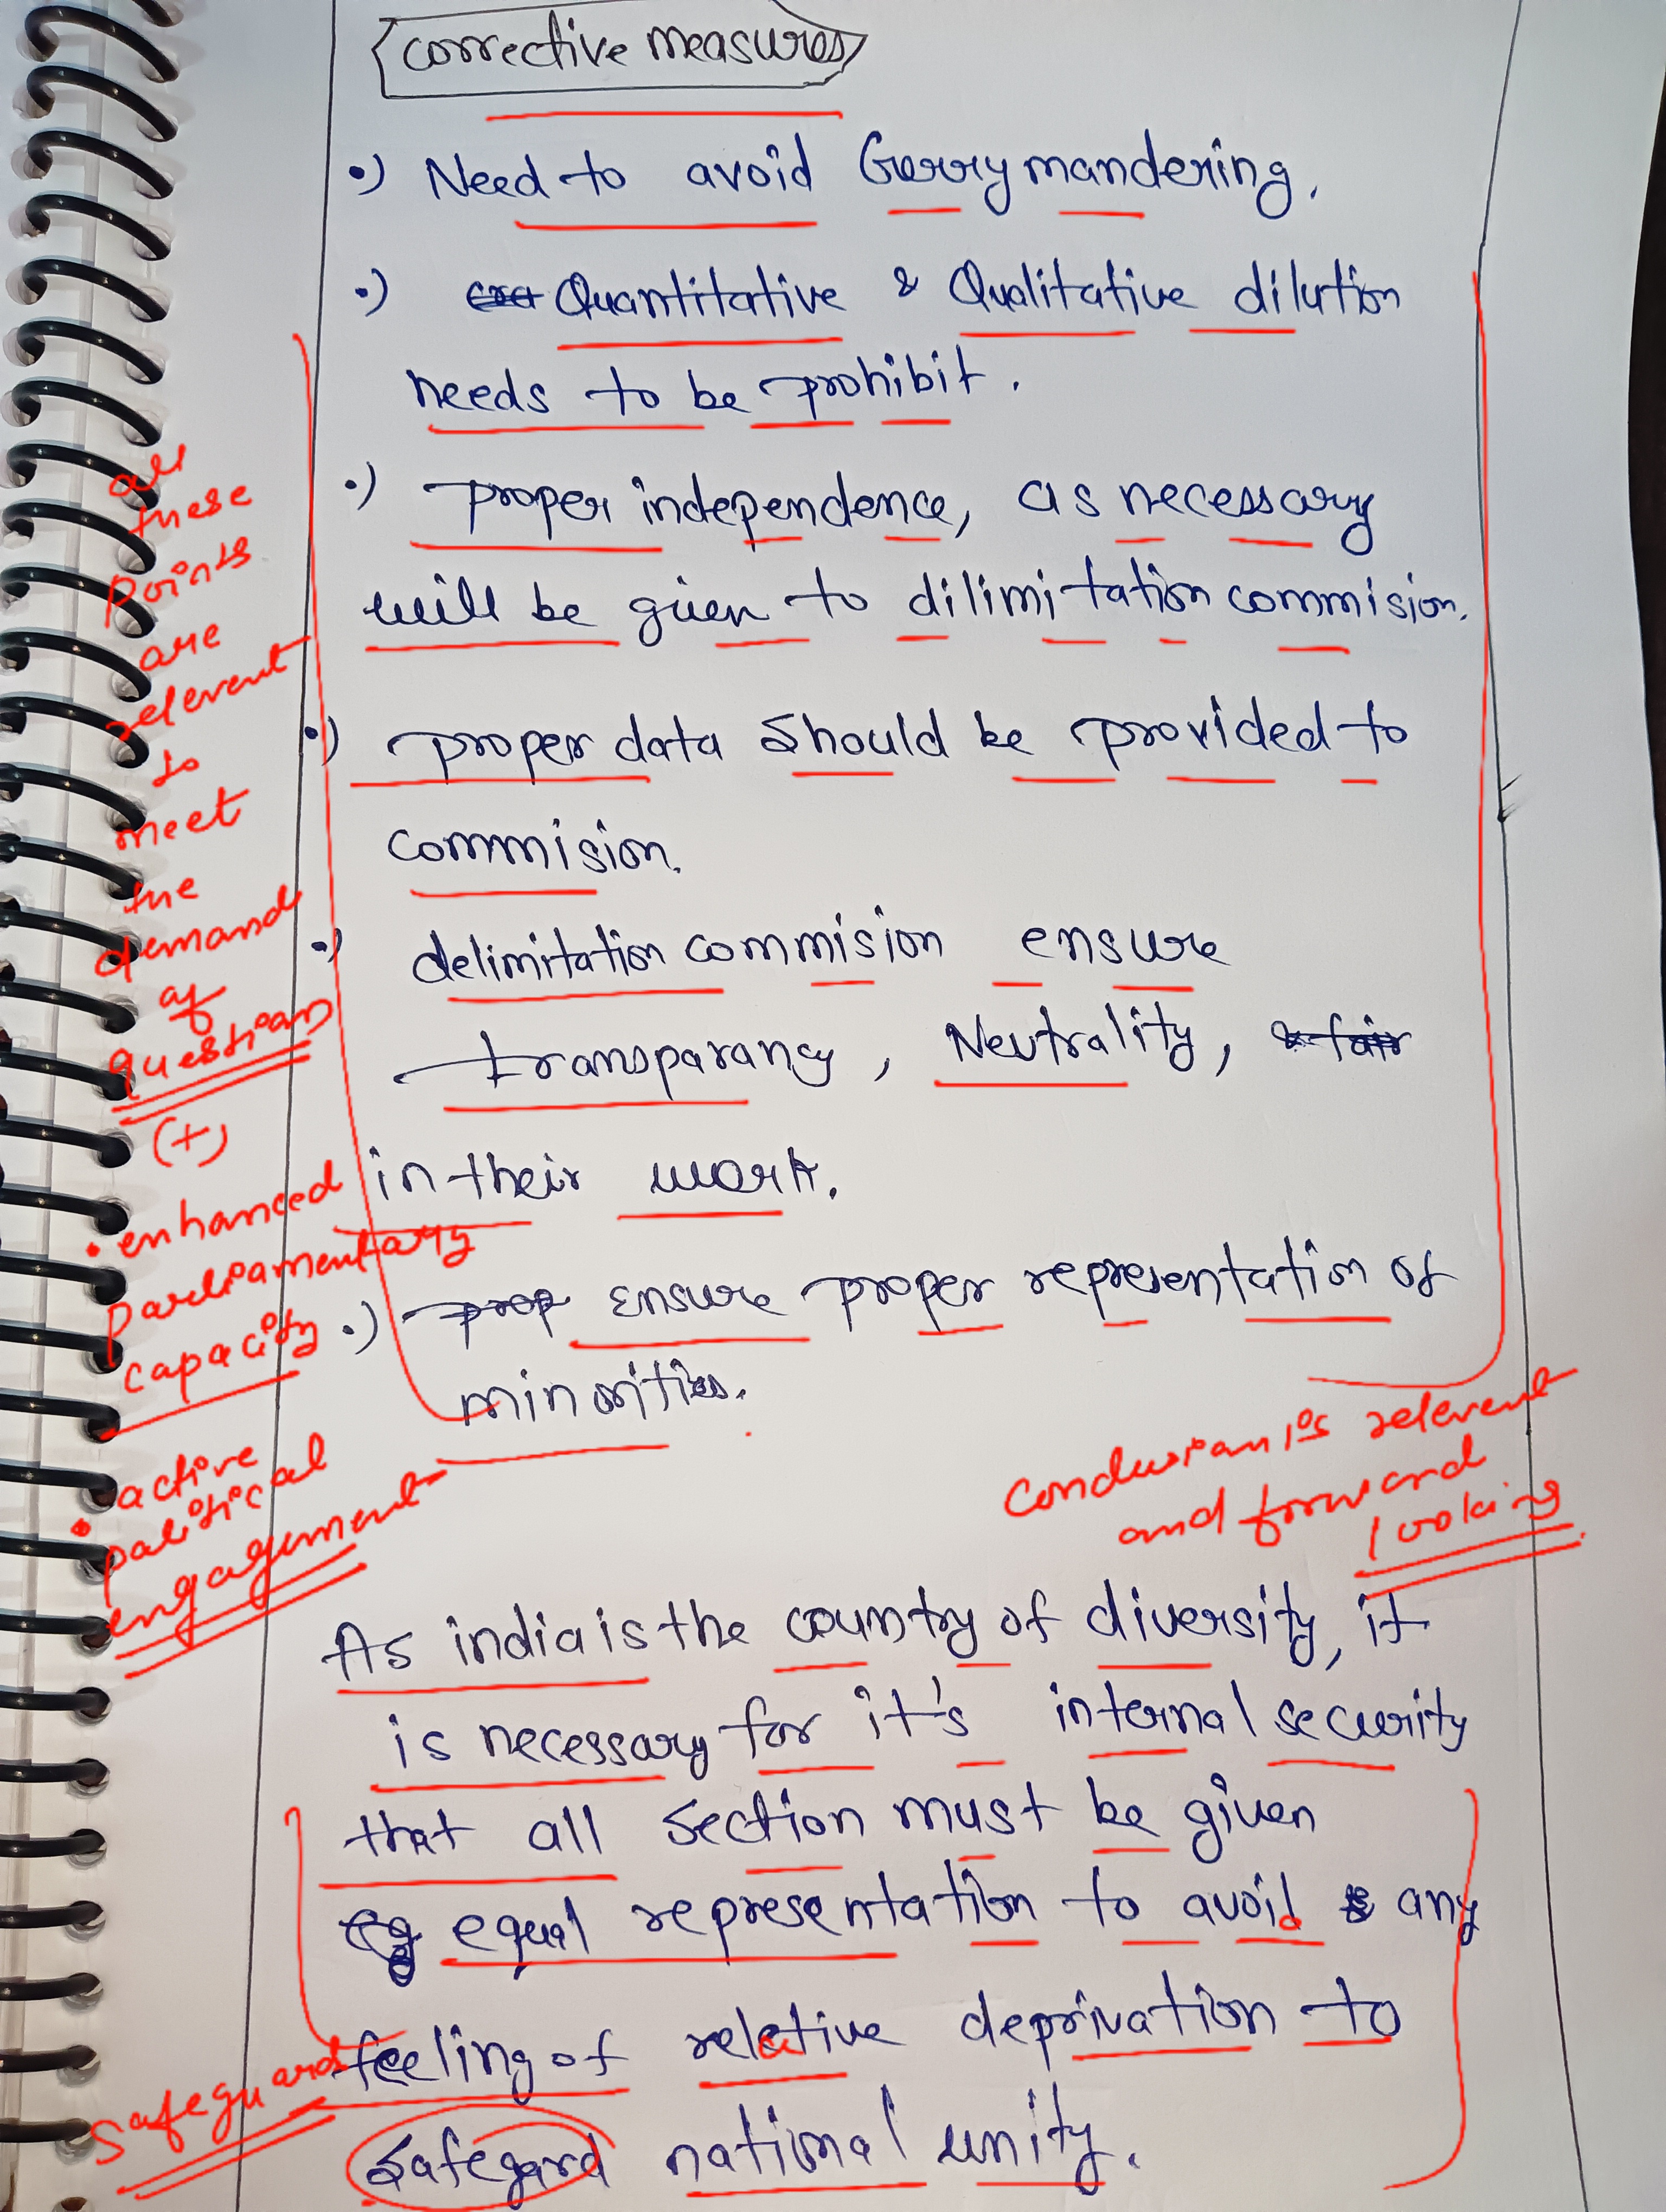 corrective measures
•) Need to avoid Gerrymandering.
•) Quantitative & Qualitative dilution
needs to be prohibit.
•) proper independence, as necessary
will be given to dilimitation commision.
•) proper data should be provided to
commision.
•) delimitation commision ensure
transparancy, Neutrality, & fair
in their work.
•) prop ensure proper representation of
minorities.
As india is the country of diversity, it
is necessary for it's internal security
that all section must be given
equal representation to avoid any
feeling of relative deprivation to
safegard national unity.
all
these
points
are
relevent
to
meet
the
demand
of
question
(+)
• enhanced
parliamentary
capacity
• active
political
engagement
conclusion is relevent
and forward
looking
safeguard